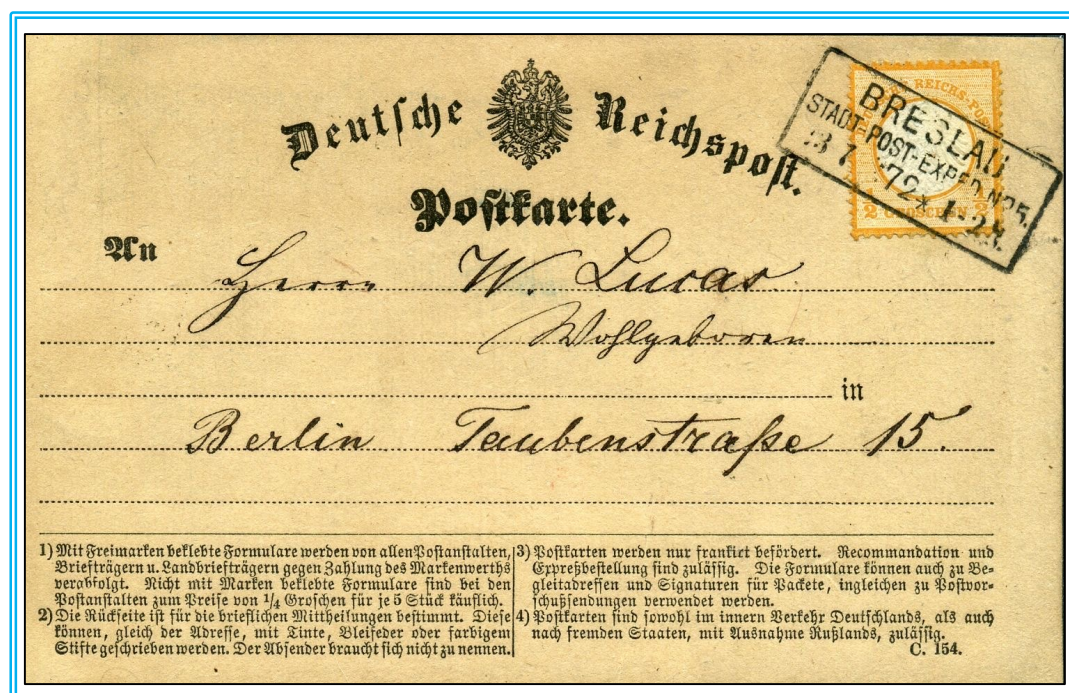 Deutsche Reichspost.
Postkarte.
BRESLAU
STADT-POST-EXPED. No 5.
72* 1-2N.
REICHS-POST
1/2 GROSCHEN 1/2
An
Herrn W. Lucas
Wohlgeboren
in
Berlin Taubenstraße 15.
1) Mit Freimarken beklebte Formulare werden von allen Postanstalten,
Briefträgern u. Landbriefträgern gegen Zahlung des Markenwerths
verabfolgt. Nicht mit Marken beklebte Formulare sind bei den
Postanstalten zum Preise von 1/4 Groschen für je 5 Stück käuflich.
2) Die Rückseite ist für die brieflichen Mittheilungen bestimmt. Diese
können, gleich der Adresse, mit Tinte, Bleifeder oder farbigem
Stifte geschrieben werden. Der Absender braucht sich nicht zu nennen.
3) Postkarten werden nur frankirt befördert. Recommandation und
Expreßbestellung sind zulässig. Die Formulare können auch zu Be-
gleitadressen und Signaturen für Packete, ingleichen zu Postvor-
schußsendungen verwendet werden.
4) Postkarten sind sowohl im innern Verkehr Deutschlands, als auch
nach fremden Staaten, mit Ausnahme Rußlands, zulässig.
C. 154.